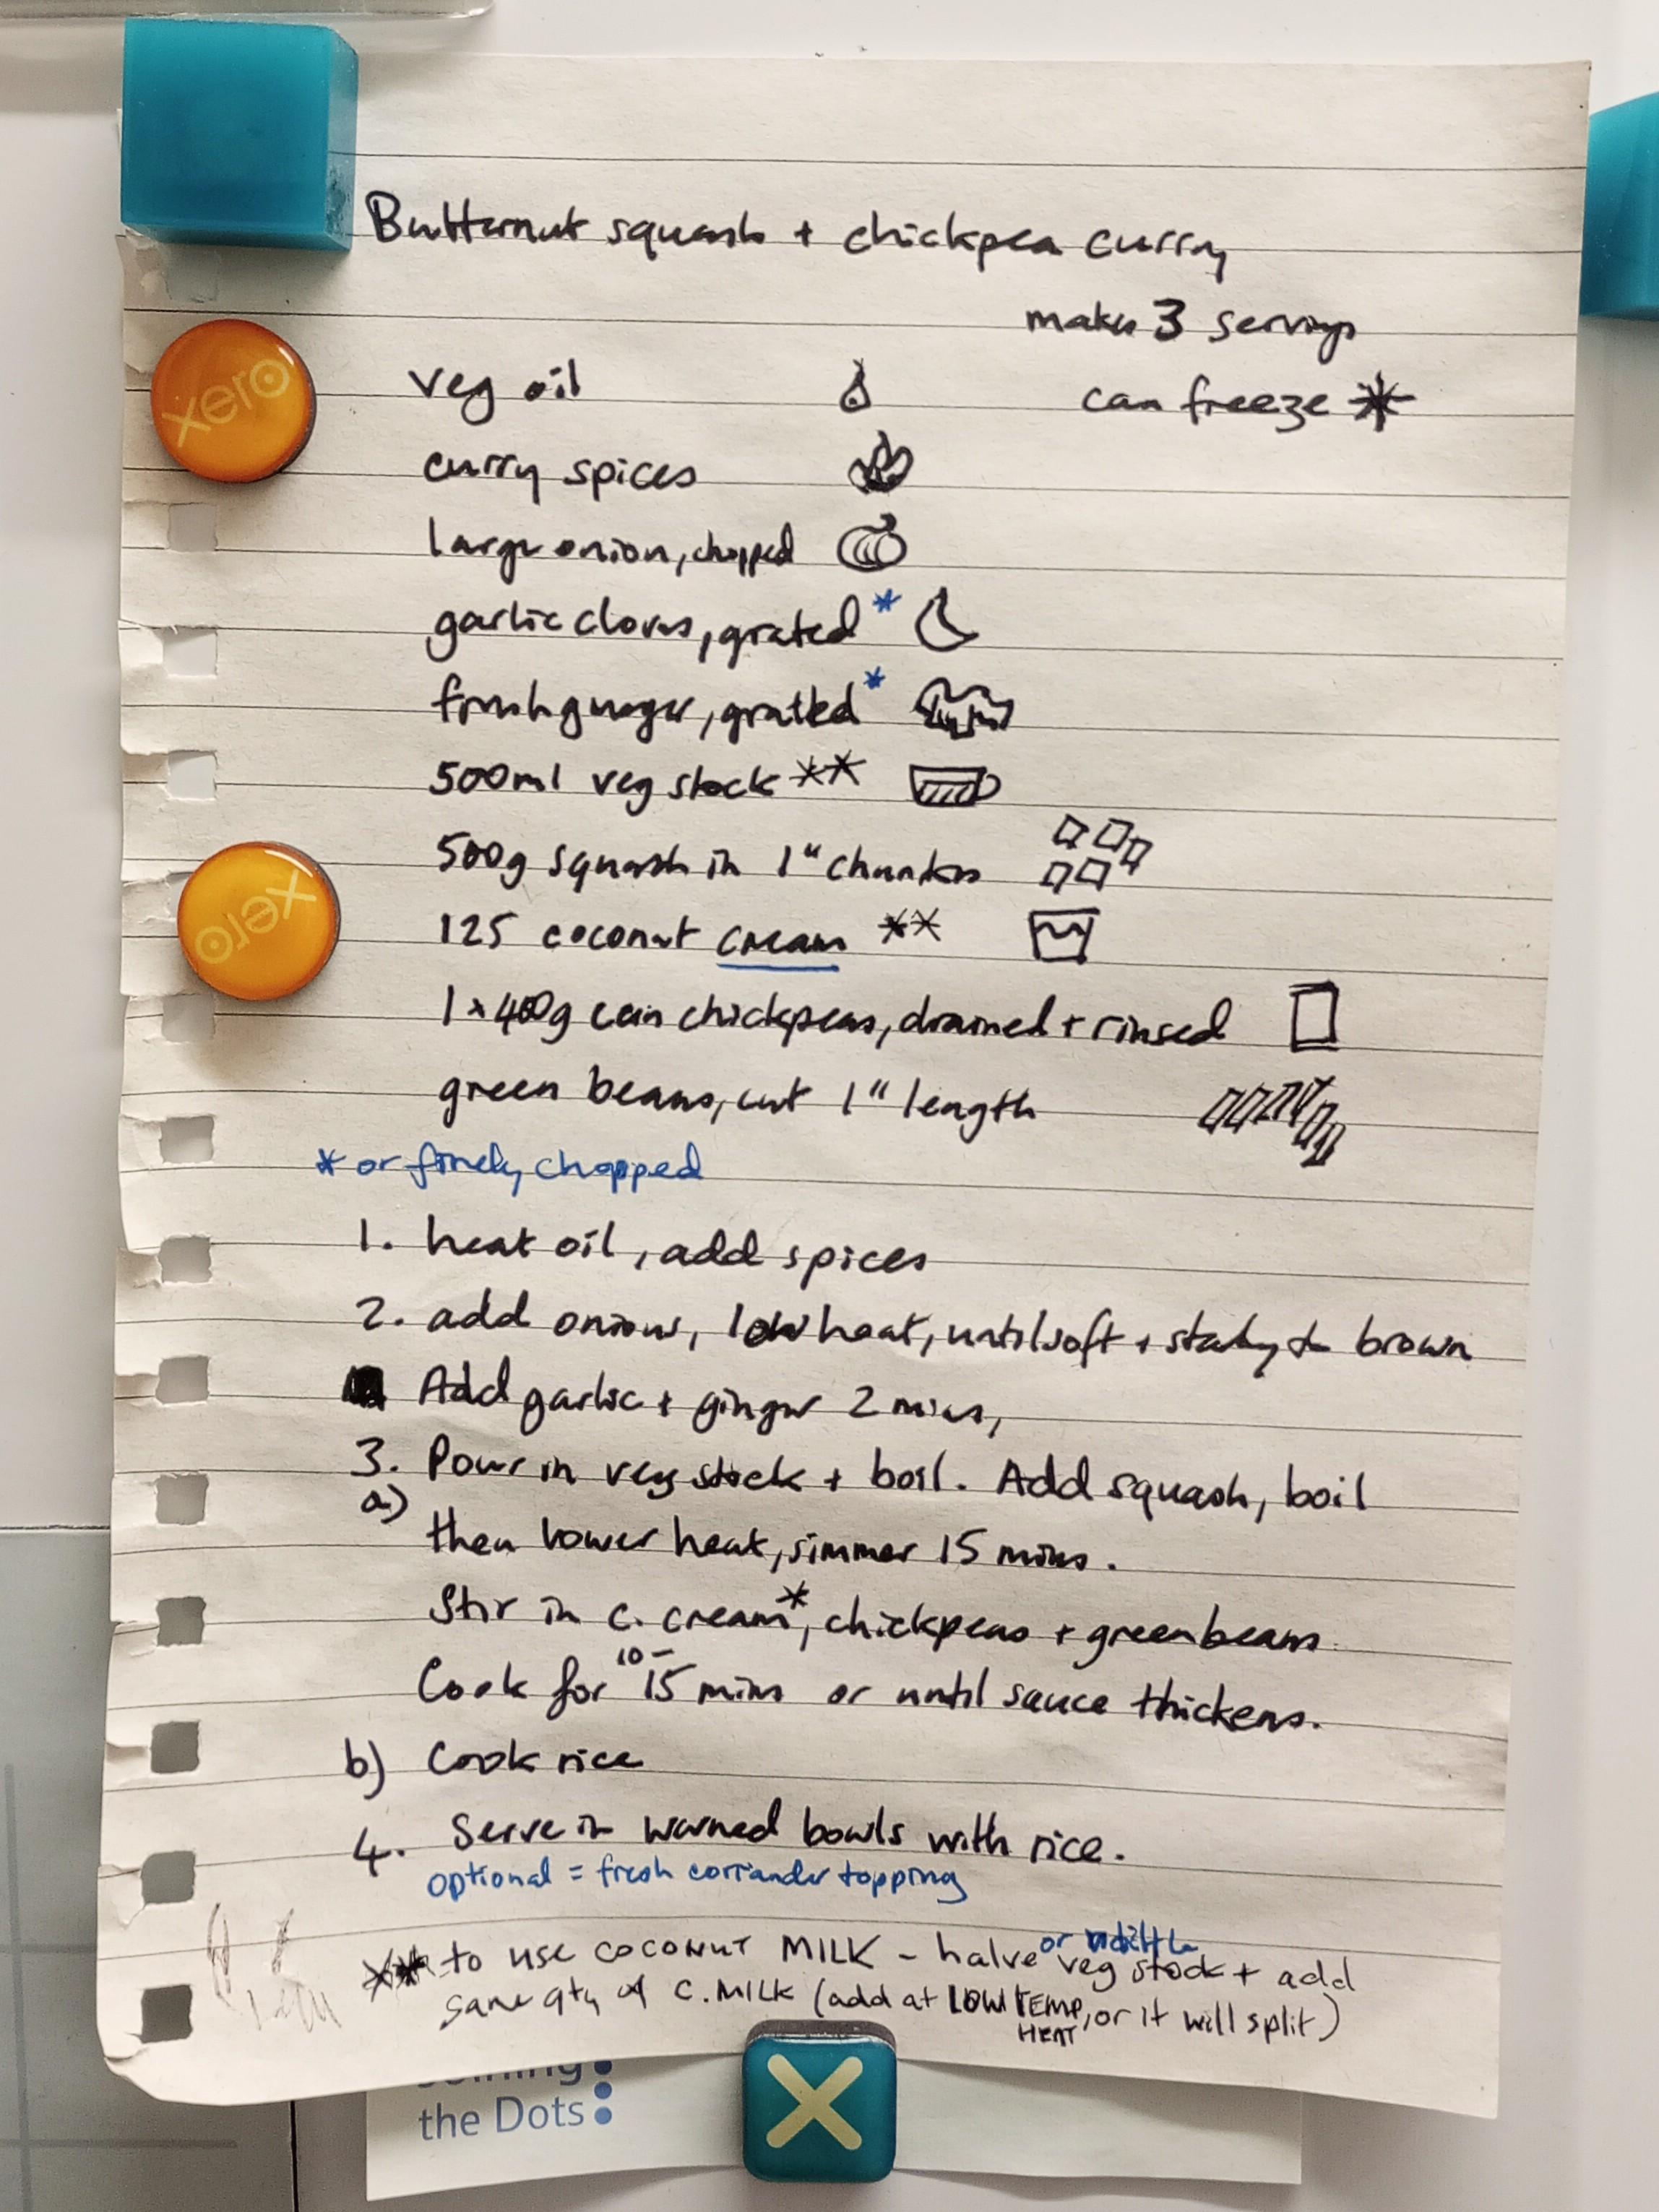 Butternut squash + chickpea curry
makes 3 servings
veg oil
can freeze *
curry spices
large onion, chopped
garlic cloves, grated *
fresh ginger, gratted *
500ml veg stock **
500g squash in 1" chunks
125 coconut cream **
1 x 400g can chickpeas, drained + rinsed
green beans, cut 1" length
* or finely chopped
1. heat oil, add spices
2. add onions, low heat, until soft + starting to brown
Add garlic + ginger 2 mins,
3. Pour in veg stock + boil. Add squash, boil
a)
then lower heat, simmer 15 mins.
Stir in c. cream*, chickpeas + green beans.
Cook for 10-15 mins or until sauce thickens.
b) Cook rice
4. Serve in warmed bowls with rice.
optional = fresh corriander topping
** to use COCONUT MILK - halve or veg stock + add
same qty of C. MILK (add at LOW TEMP, or it will split)
HEAT
xero
xero
Joining
the Dots
X